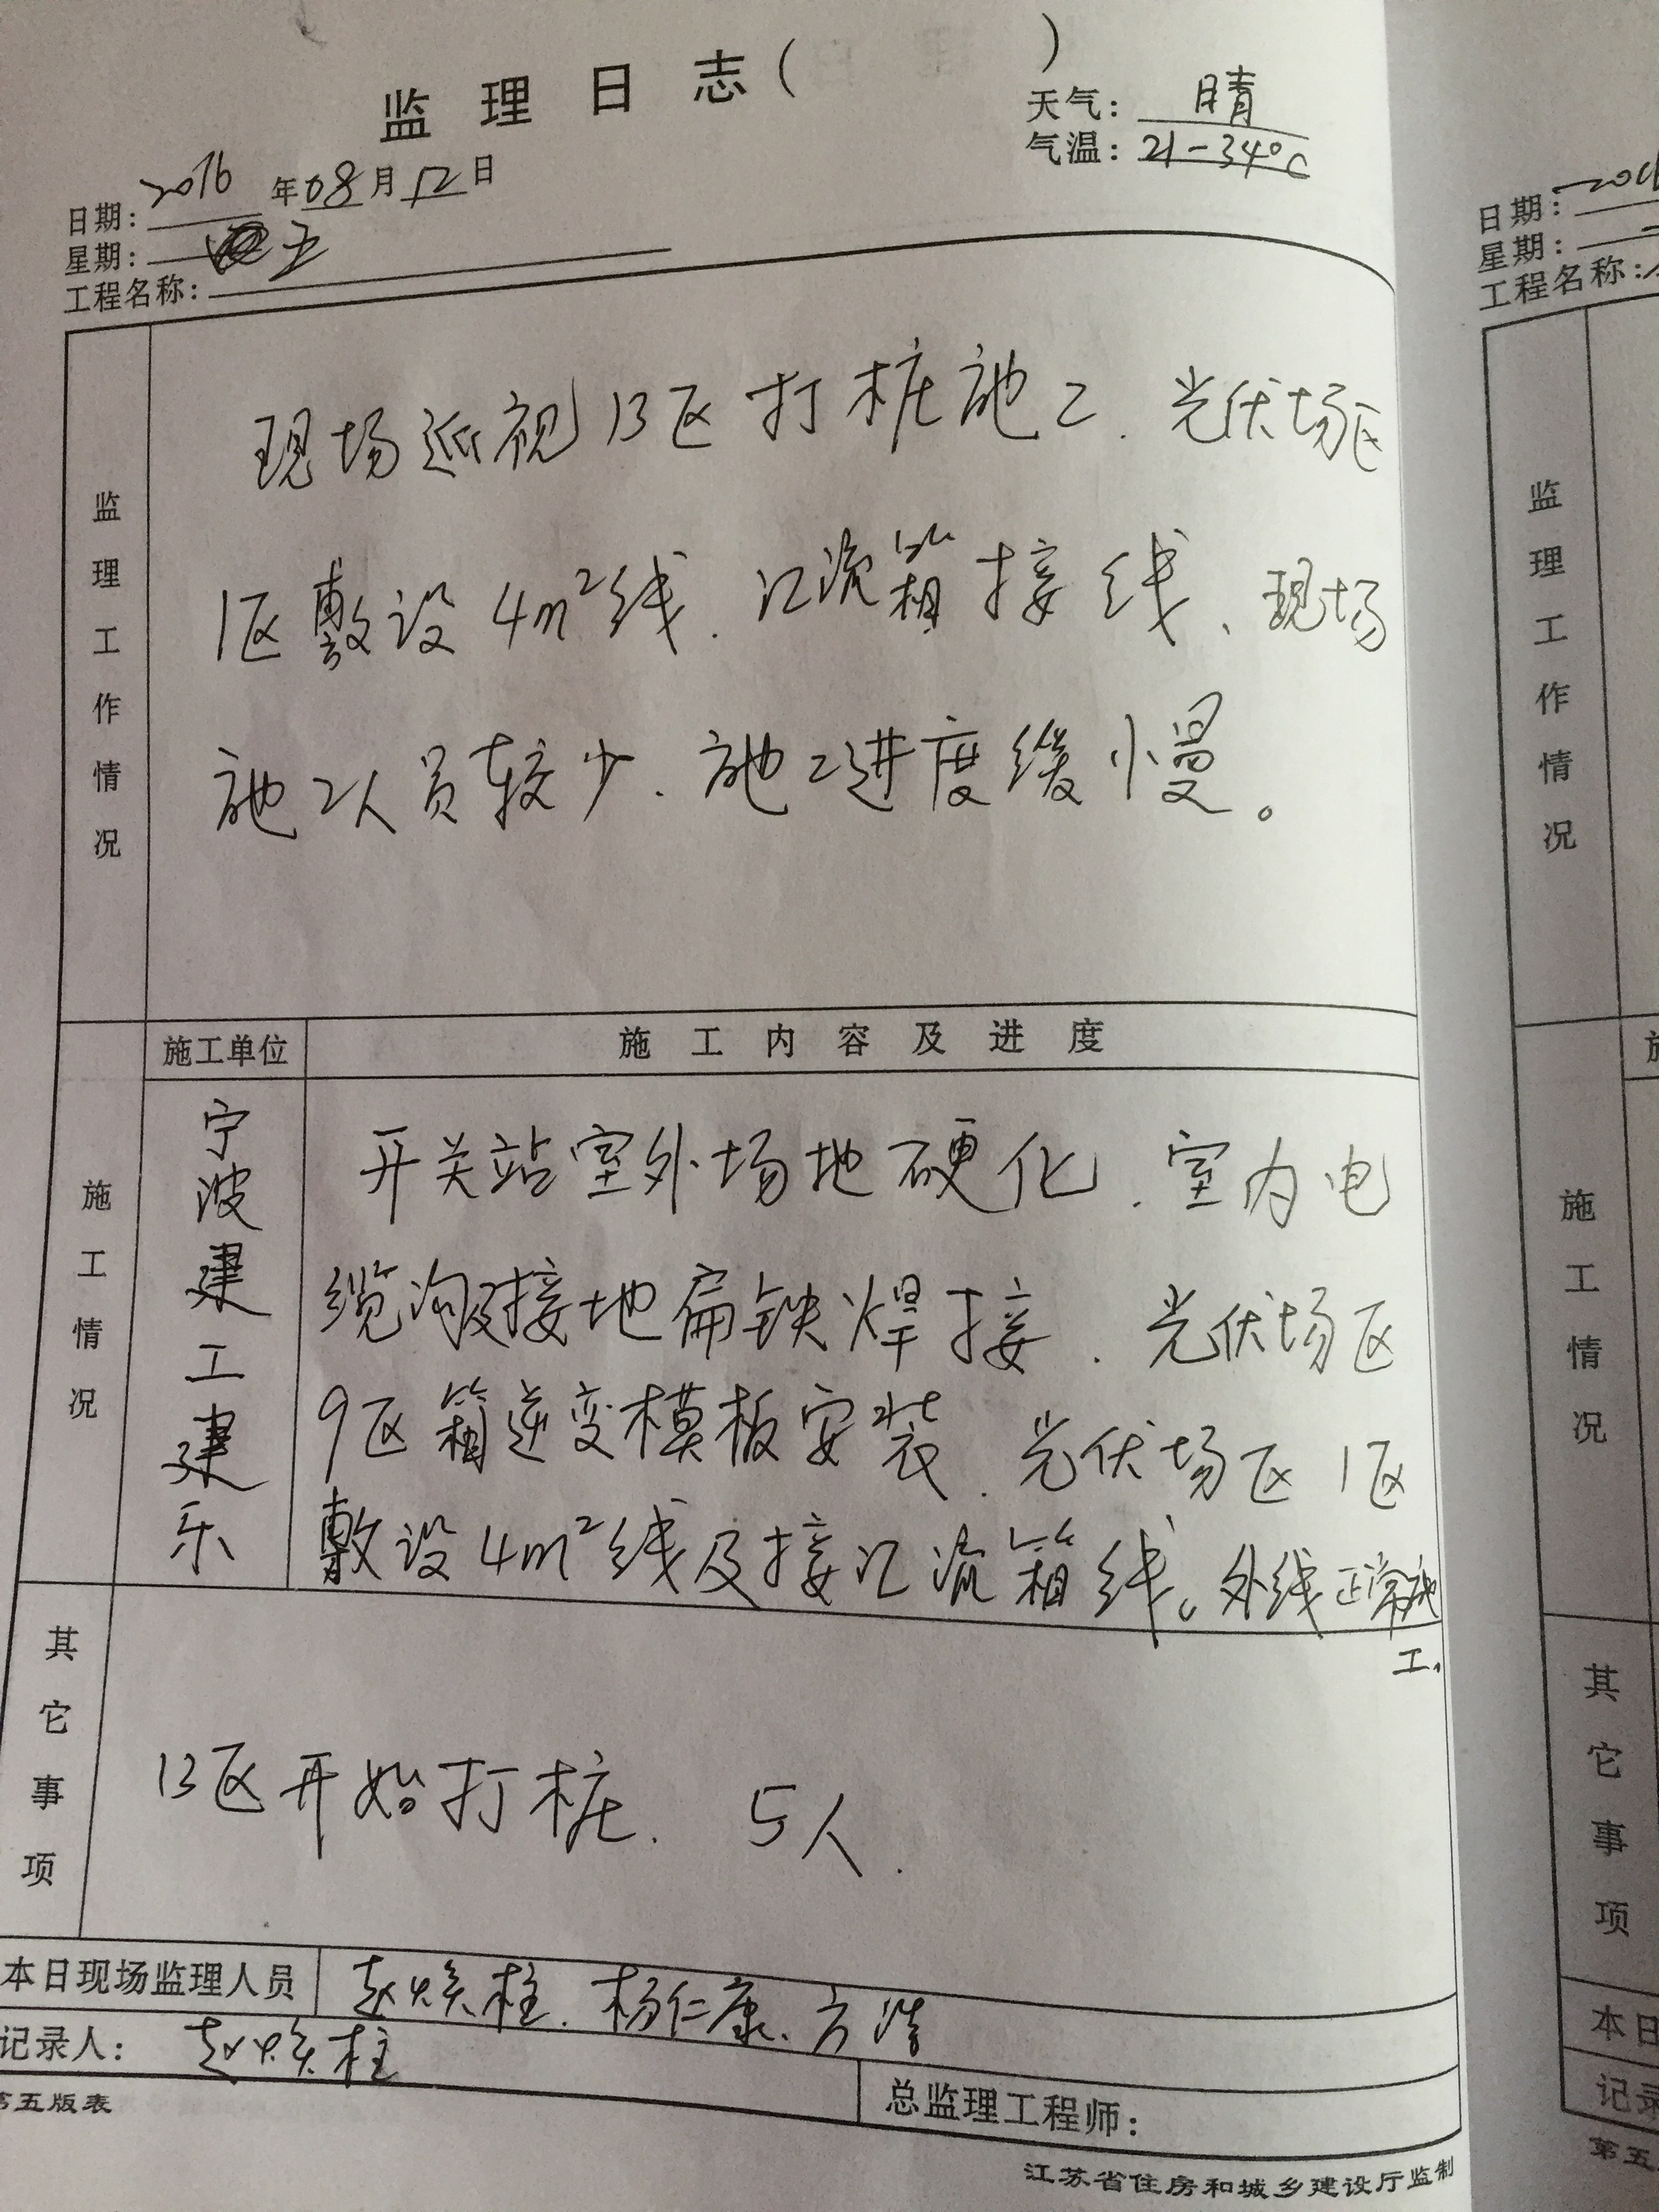 监理日志(          )
天气: 晴
气温: 21-34°C
日期: 2016年08月12日
星期: 五
工程名称:
监理工作情况
现场巡视13区打桩施工.光伏场区
1区敷设4m²线.汇流箱接线、现场
施工人员较少.施工进度缓慢。
施工情况
施工单位
施工内容及进度
宁波建工建乐
开关站室外场地硬化.室内电
缆沟及接地扁铁焊接.光伏场区
9区箱逆变模板安装.光伏场区1区
敷设4m²线及接汇流箱线。外线正常施
工.
其它事项
13区开始打桩. 5人.
本日现场监理人员 赵焕柱.杨仁康.方浩
记录人: 赵焕柱
总监理工程师:
第五版表
江苏省住房和城乡建设厅监制
日期:
星期:
工程名称:
监理工作情况
施工情况
其它事项
本日
记录
第五